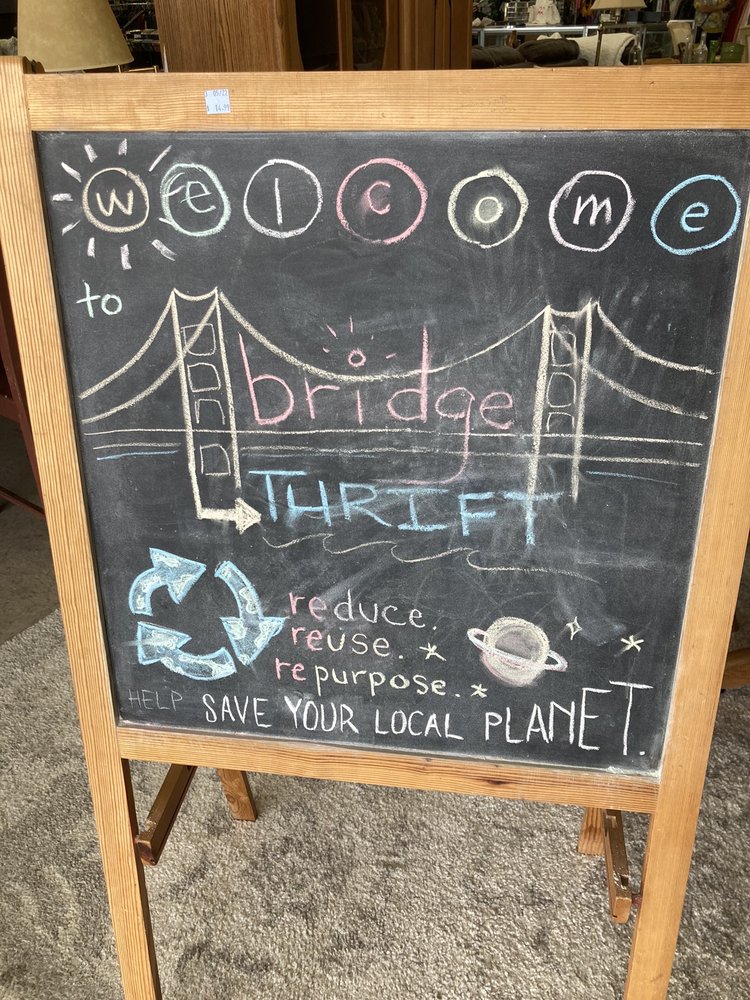 05/22
$ 14.99
welcome
to
bridge
THRIFT
reduce.
reuse.
repurpose.
HELP SAVE YOUR LOCAL PLANET.